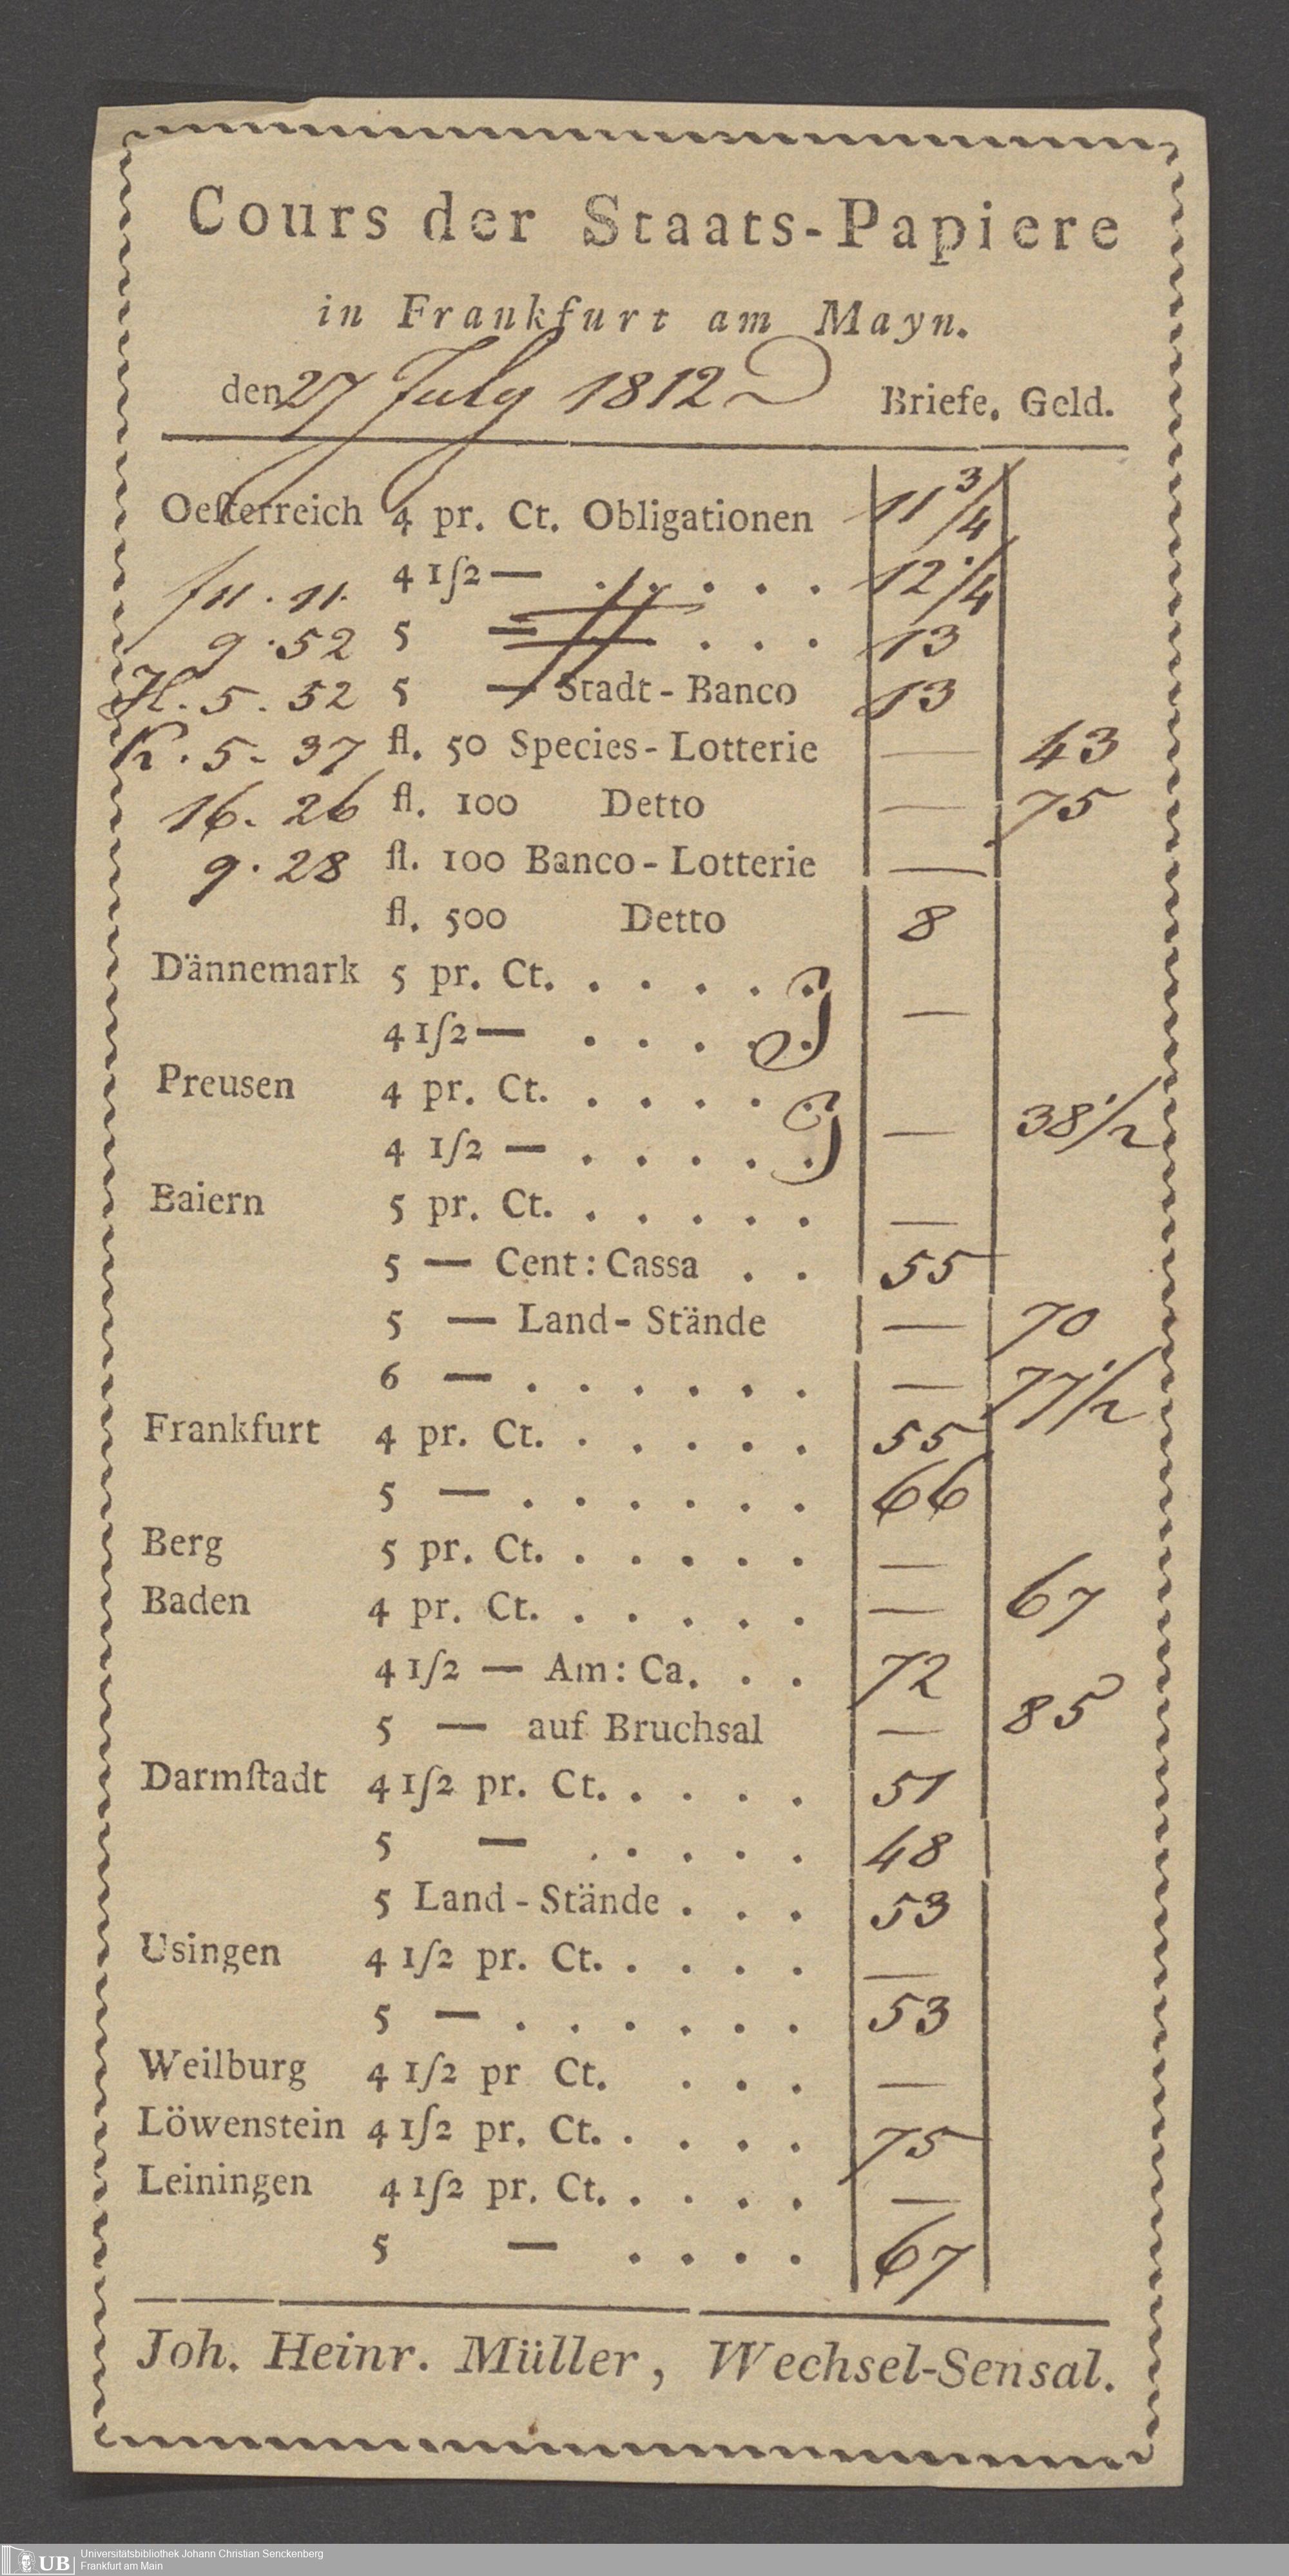 Cours der Staats-Papiere
in Frankfurt am Mayn.
den 27 July 1812 Briefe. Geld.
Oeſterreich 4 pr. Ct. Obligationen 11 3/4
4 1/2 — . . . . . 12 1/4
f 11 . 11.
9 . 52 5 — . . . 13
H. 5. 52 5 — Stadt-Banco 13
K. 5. 37 fl. 50 Species-Lotterie — 43
16. 26 fl. 100 Detto — 75
9. 28 fl. 100 Banco-Lotterie —
fl. 500 Detto 8
Dännemark 5 pr. Ct. . . . . .
4 1/2 — . . . . . —
Preusen 4 pr. Ct. . . . . .
4 1/2 — . . . . . — 38 1/2
Baiern 5 pr. Ct. . . . . . —
5 — Cent: Cassa . . 55
5 — Land-Stände — 70
6 — . . . . . . — 77 1/2
Frankfurt 4 pr. Ct. . . . . . 55
5 — . . . . . . 66
Berg 5 pr. Ct. . . . . . —
Baden 4 pr. Ct. . . . . . — 67
4 1/2 — Am: Ca. . . 72
5 — auf Bruchsal — 85
Darmſtadt 4 1/2 pr. Ct. . . . . 51
5 — . . . . . 48
5 Land-Stände . . . 53
Usingen 4 1/2 pr. Ct. . . . . —
5 — . . . . . . 53
Weilburg 4 1/2 pr Ct. . . . —
Löwenstein 4 1/2 pr. Ct. . . . . 75
Leiningen 4 1/2 pr. Ct. . . . . —
5 — . . . . 67
Joh. Heinr. Müller, Wechsel-Sensal.
UB Universitätsbibliothek Johann Christian Senckenberg
Frankfurt am Main